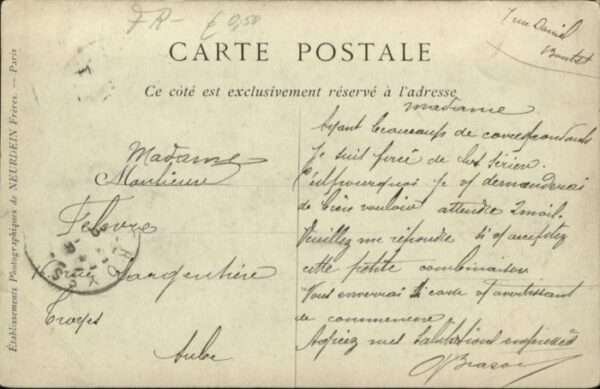 FR - € 0,50
CARTE POSTALE
Ce côté est exclusivement réservé à l'adresse
Établissements Photographiques de NEURDEIN Frères. — Paris
Madame
Monsieur
Rue Largentière
Troyes
Aube
TROYES
7 rue Daniel
madame
Ayant beaucoups de correspondants
Je suis forcé de les
C'est pourquoi je v/ demanderai
de bien vouloir attendre
Veuillez me répondre si v/ acceptez
cette petite combinaison
Vous enverrai si carte v/ avertissant
de commencer.
Agréez mes salutations empressées